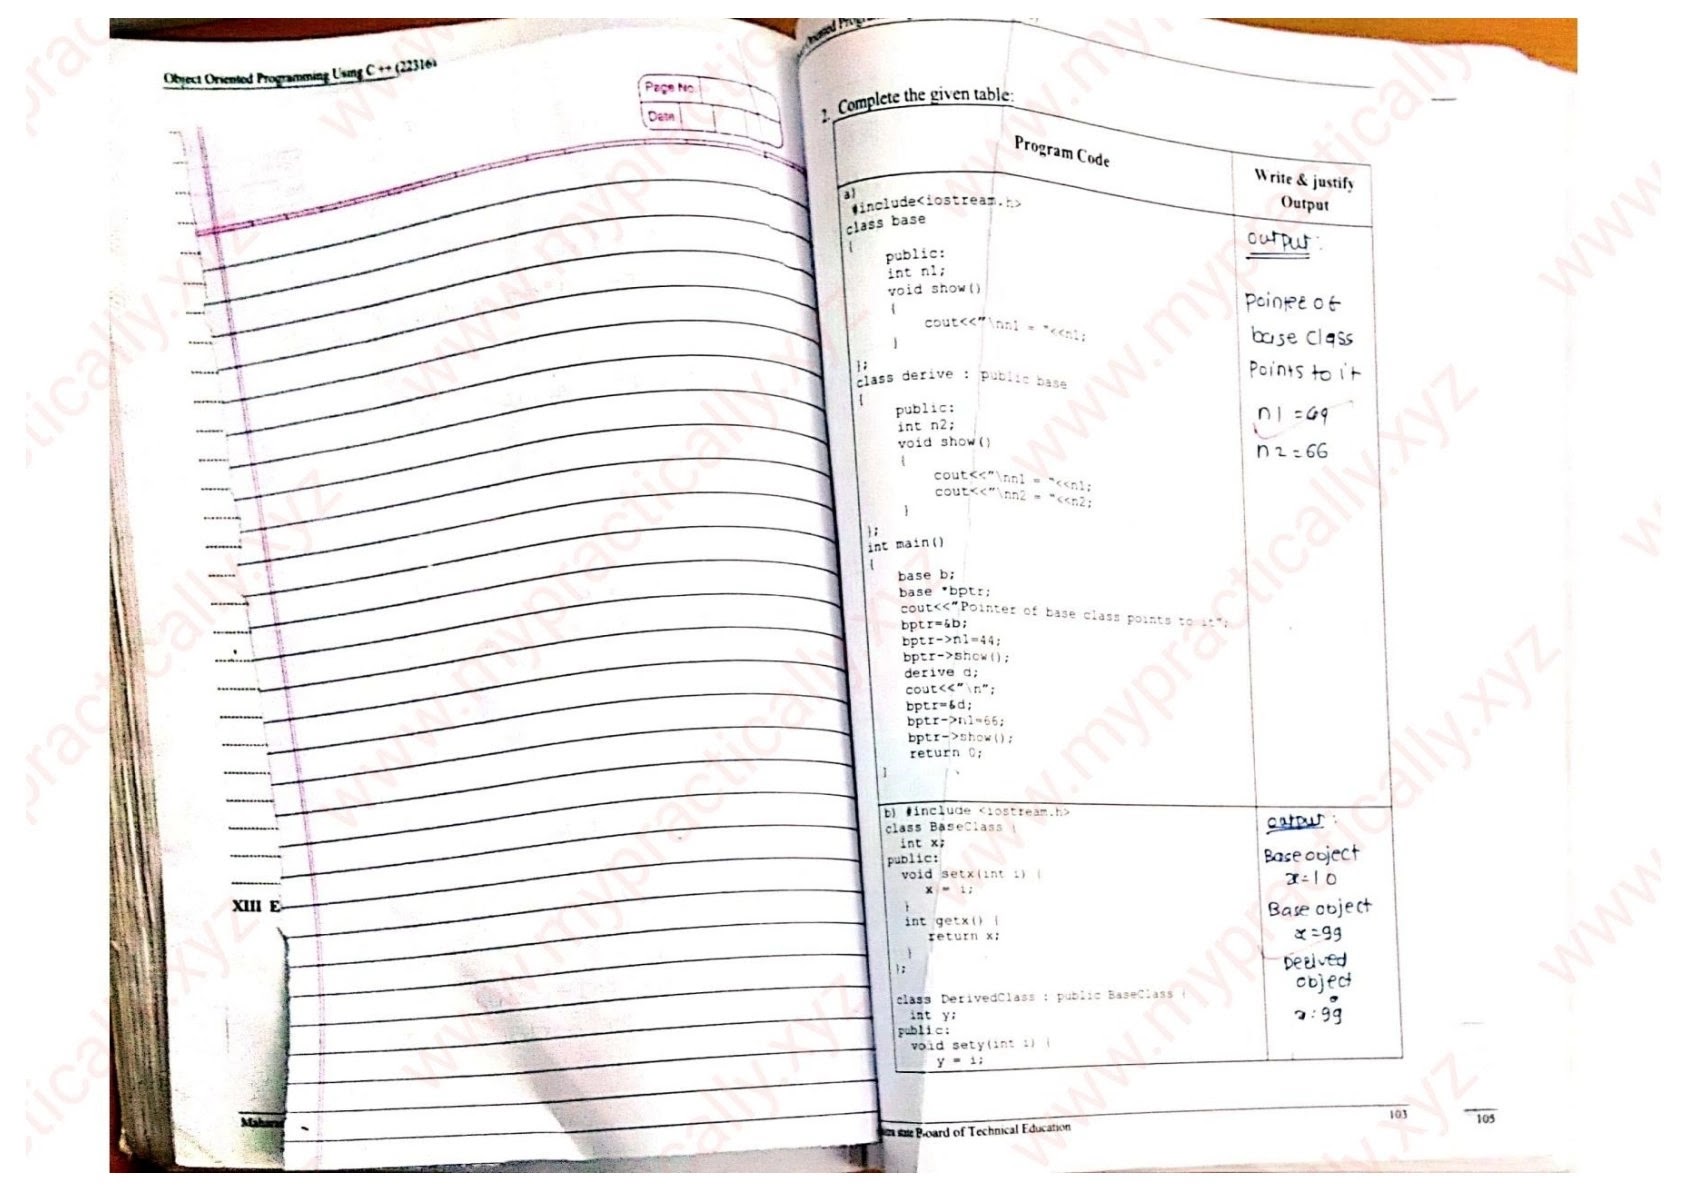 Object Oriented Programming Using C ++ (22316)
Page No.
Date
XIII E
Mahara
2. Complete the given table:
Program Code
Write & justify
Output
a)
#include<iostream.h>
class base
{
public:
int n1;
void show()
{
cout<<"\nn1 = "<<n1;
}
};
class derive : public base
{
public:
int n2;
void show()
{
cout<<"\nn1 = "<<n1;
cout<<"\nn2 = "<<n2;
}
};
int main()
{
base b;
base *bptr;
cout<<"Pointer of base class points to it";
bptr=&b;
bptr->n1=44;
bptr->show();
derive d;
cout<<"\n";
bptr=&d;
bptr->n1=66;
bptr->show();
return 0;
}
output:
pointer of
base class
Points to it
n1 =
n2 = 66
b) #include <iostream.h>
class BaseClass {
int x;
public:
void setx(int i) {
x = i;
}
int getx() {
return x;
}
};
class DerivedClass : public BaseClass {
int y;
public:
void sety(int i) {
y = i;
output:
Base object
x=10
Base object
x=99
Derived
object
x:99
state Board of Technical Education
103
105
www.mypractically.xyz